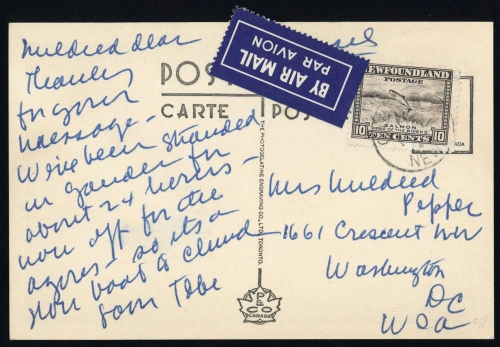 Mildred dear
Thanks
for your
message -
We've been stranded
in Gander for
about 24 hours -
now off for the
azores - so its a
slow boat to
from Tobe
POST
CARTE POS
BY AIR MAIL
PAR AVION
NEWFOUNDLAND
POSTAGE
SALMON
10 TEN CENTS 10
NE
THE PHOTOGELATINE ENGRAVING CO., LTD., TORONTO.
PE
CO
CANADA
Mrs Mildred
Pepper
1661 Crescent
Washington
DC
USA